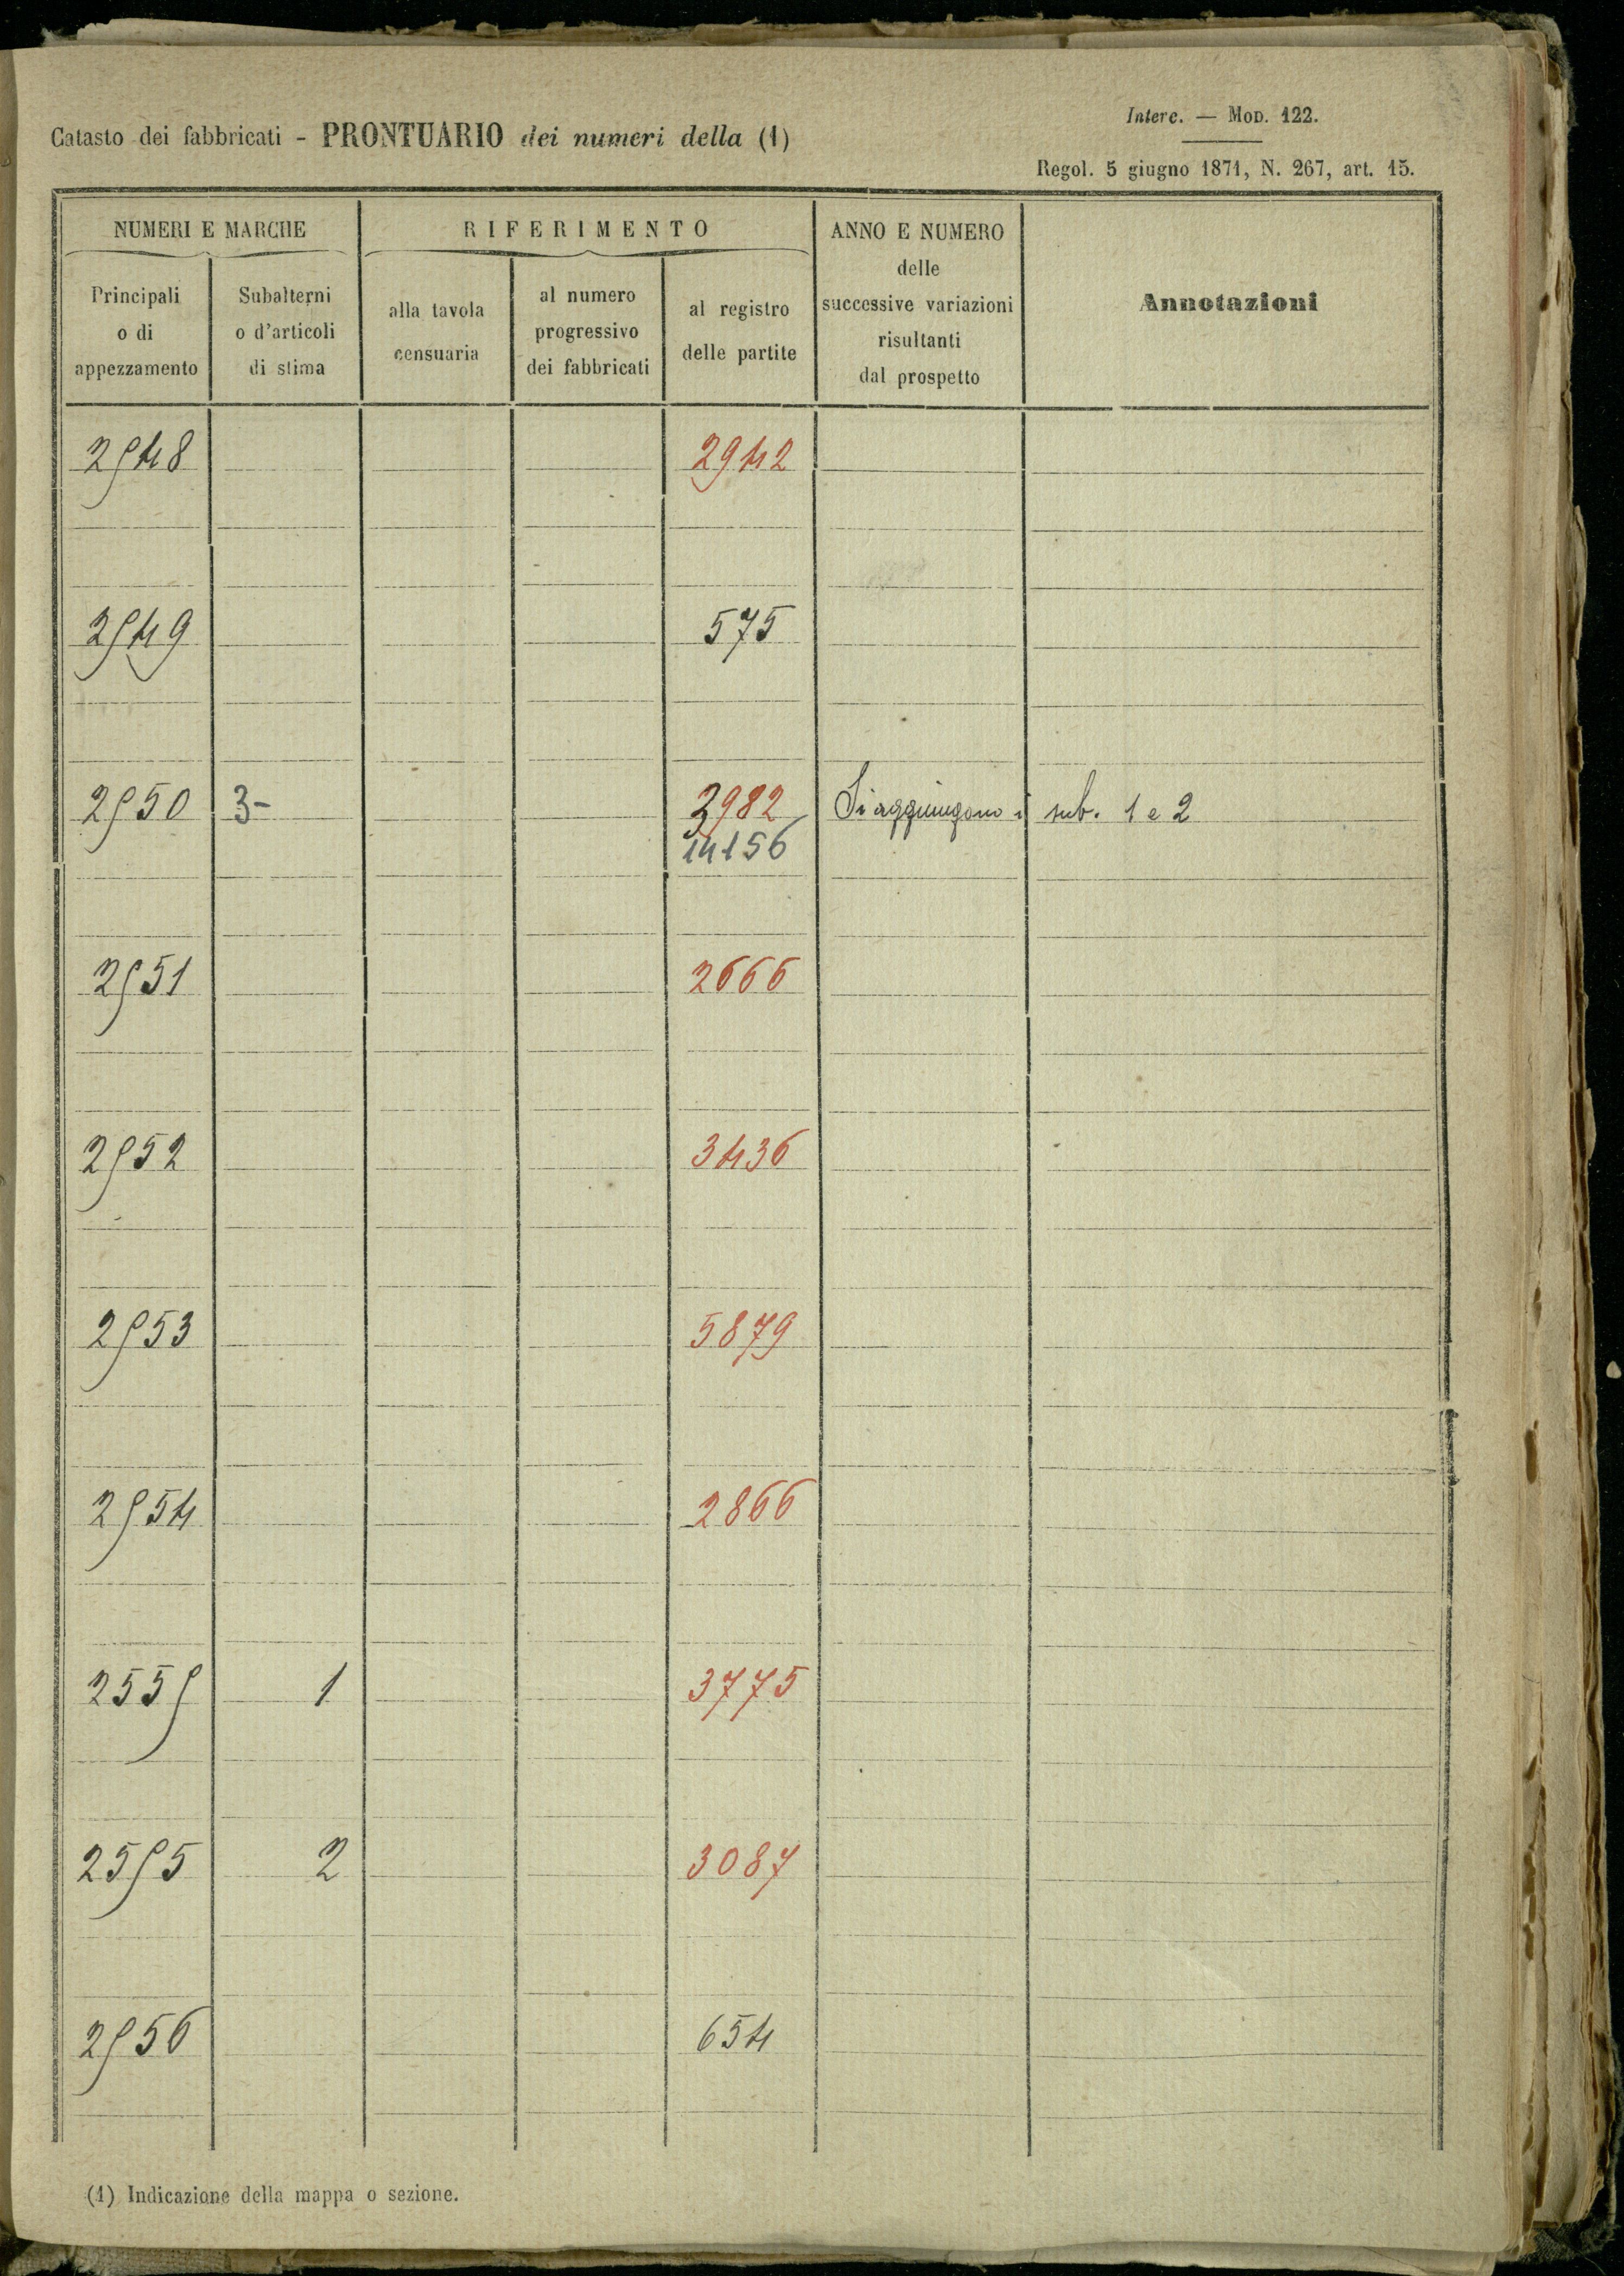 Interc. — Mod. 122.
Catasto dei fabbricati - PRONTUARIO dei numeri della (1)
Regol. 5 giugno 1871, N. 267, art. 15.
NUMERI E MARCHE
RIFERIMENTO
ANNO E NUMERO
delle
successive variazioni
risultanti
dal prospetto
Annotazioni
Principali
o di
appezzamento
Subalterni
o d'articoli
di stima
alla tavola
censuaria
al numero
progressivo
dei fabbricati
al registro
delle partite
2548 2942
2549 575
2550 3- 3982 Si aggiungono i sub. 1 e 2
14156
2551 2666
2552 3436
2553 5879
2554 2866
2555 1 3775
2555 2 3087
2556 654
(1) Indicazione della mappa o sezione.